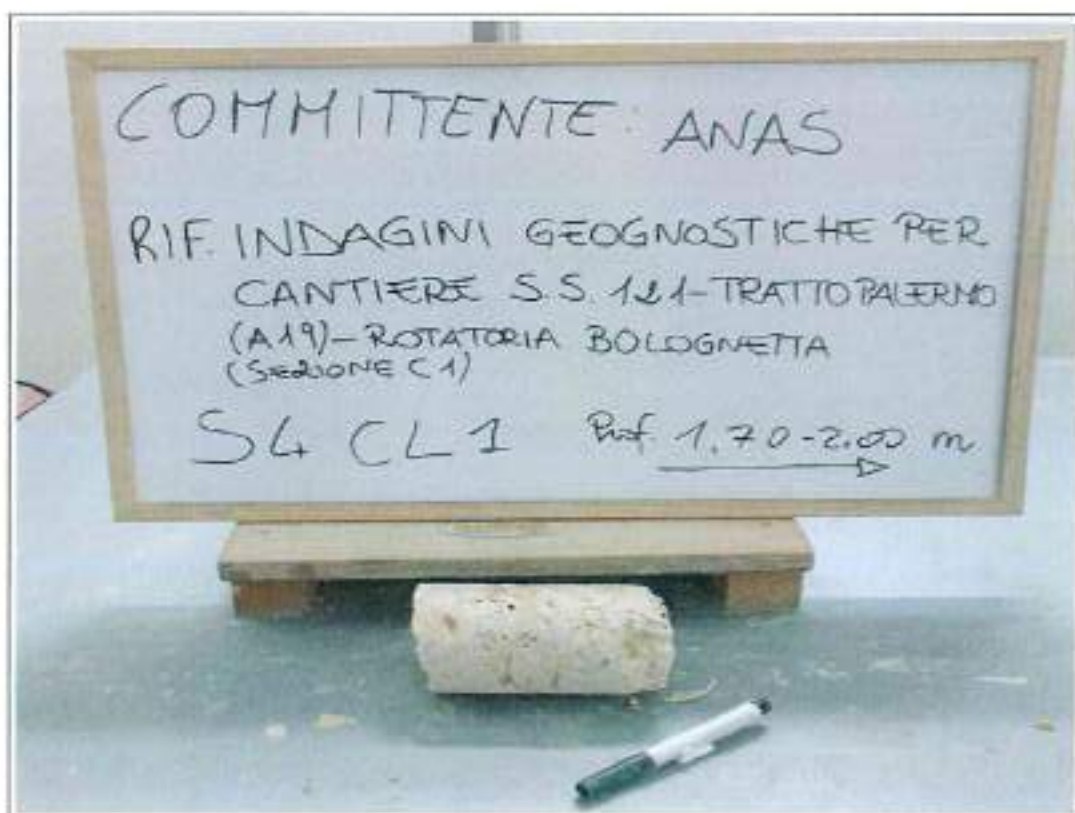 COMMITTENTE: ANAS
RIF. INDAGINI GEOGNOSTICHE PER
CANTIERE S.S. 121-TRATTO PALERMO
(A19)-ROTATORIA BOLOGNETTA
(SEZIONE C1)
S4 CL1 Prof. 1.70-2.00 m